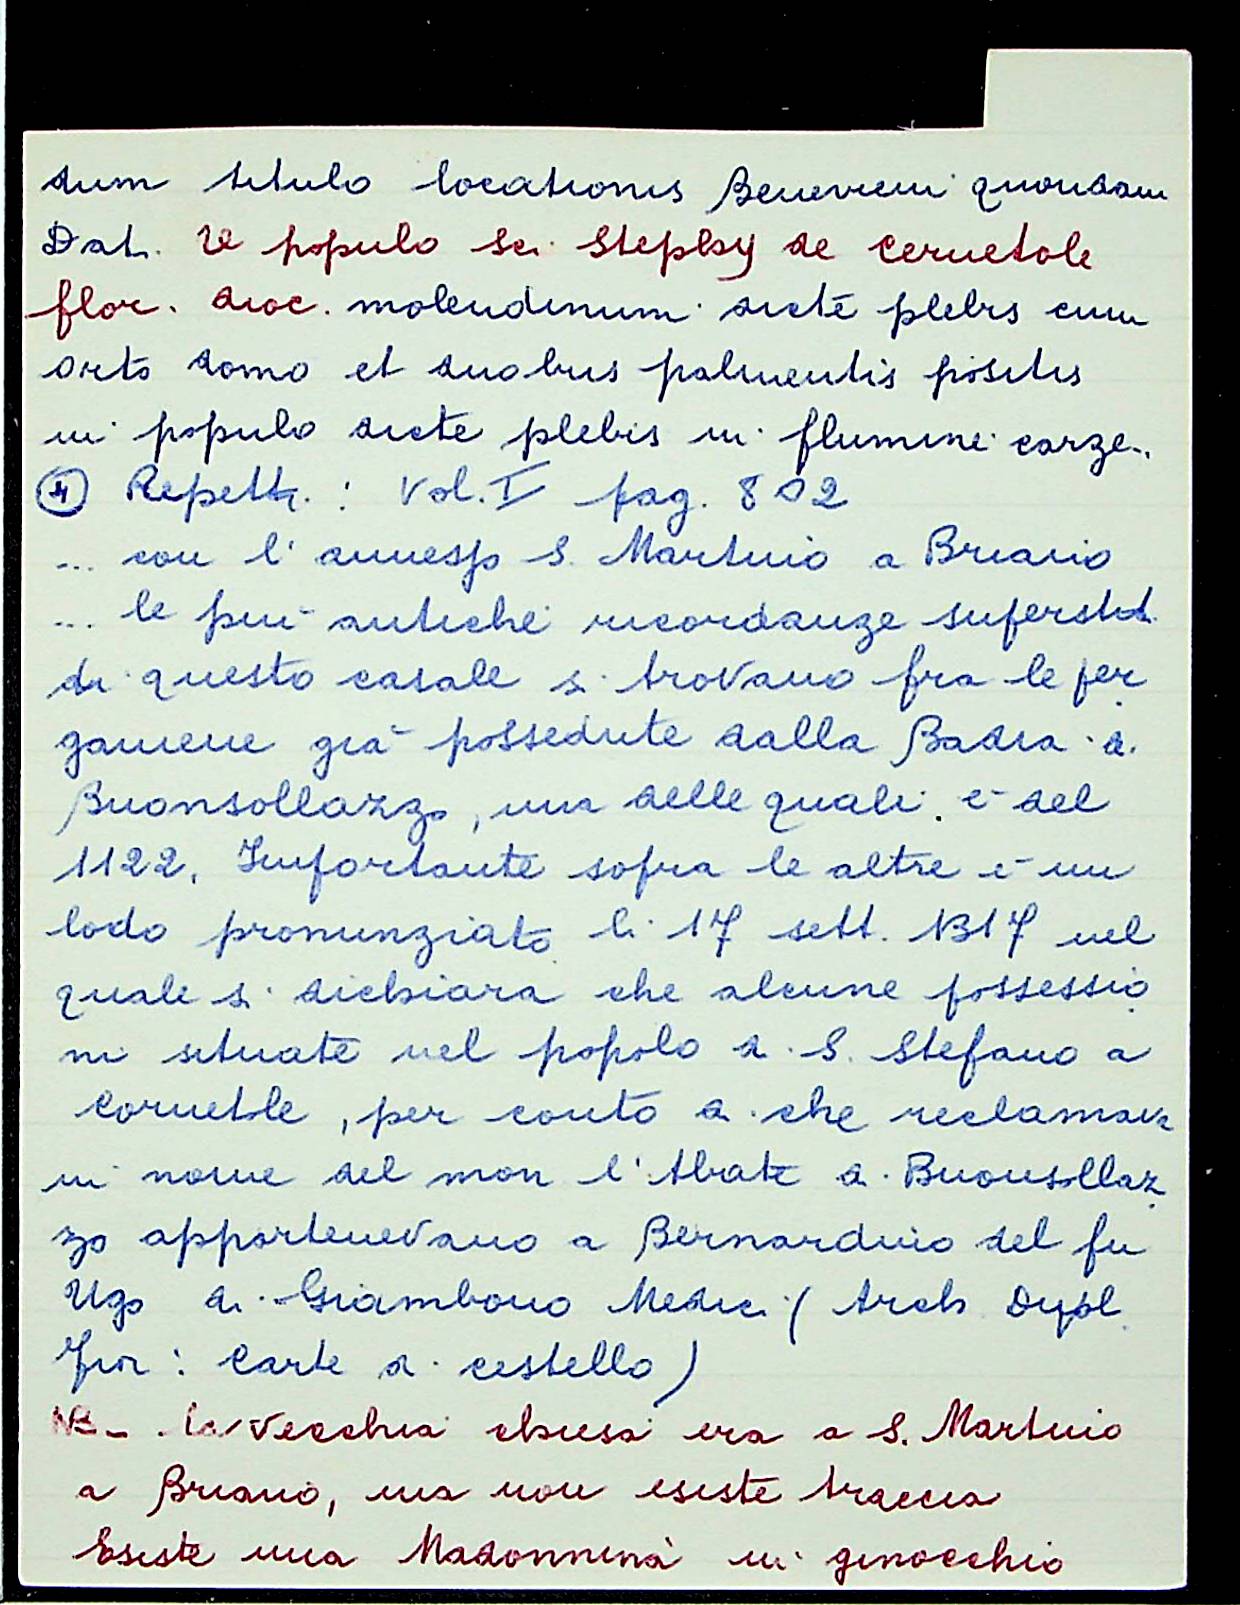 dum titulo locationis Benevieni quondam
Dat. de populo Sci Stephy de Cernetole
flor. dioc. molendinum dicte plebis cum
orto domo et duobus palmentis positis
in populo dicte plebis in flumine carze..
④ Repetti: Vol. I pag. 802
... con l'annesso S. Martino a Briano
... le più antiche ricordanze superstit.
di questo casale si trovano fra le per
gamene già possedute dalla Badia di
Buonsollazzo, una delle quali è del
1122. Importante sopra le altre è un
lodo pronunziato li 17 sett. 1317 nel
quale si dichiara che alcune possessio
ni situate nel popolo di S. Stefano a
Cornetole, per conto di che reclamava
in nome del mon l'Abate di Buonsollaz
zo appartenevano a Bernardino del fu
Ugo di Giambono Medici (Arch Dipl.
Fior: Carte di cestello)
NB - La vecchia chiesa era a S. Martino
a Briano, ma non esiste traccia
Esiste una Madonnina in ginocchio